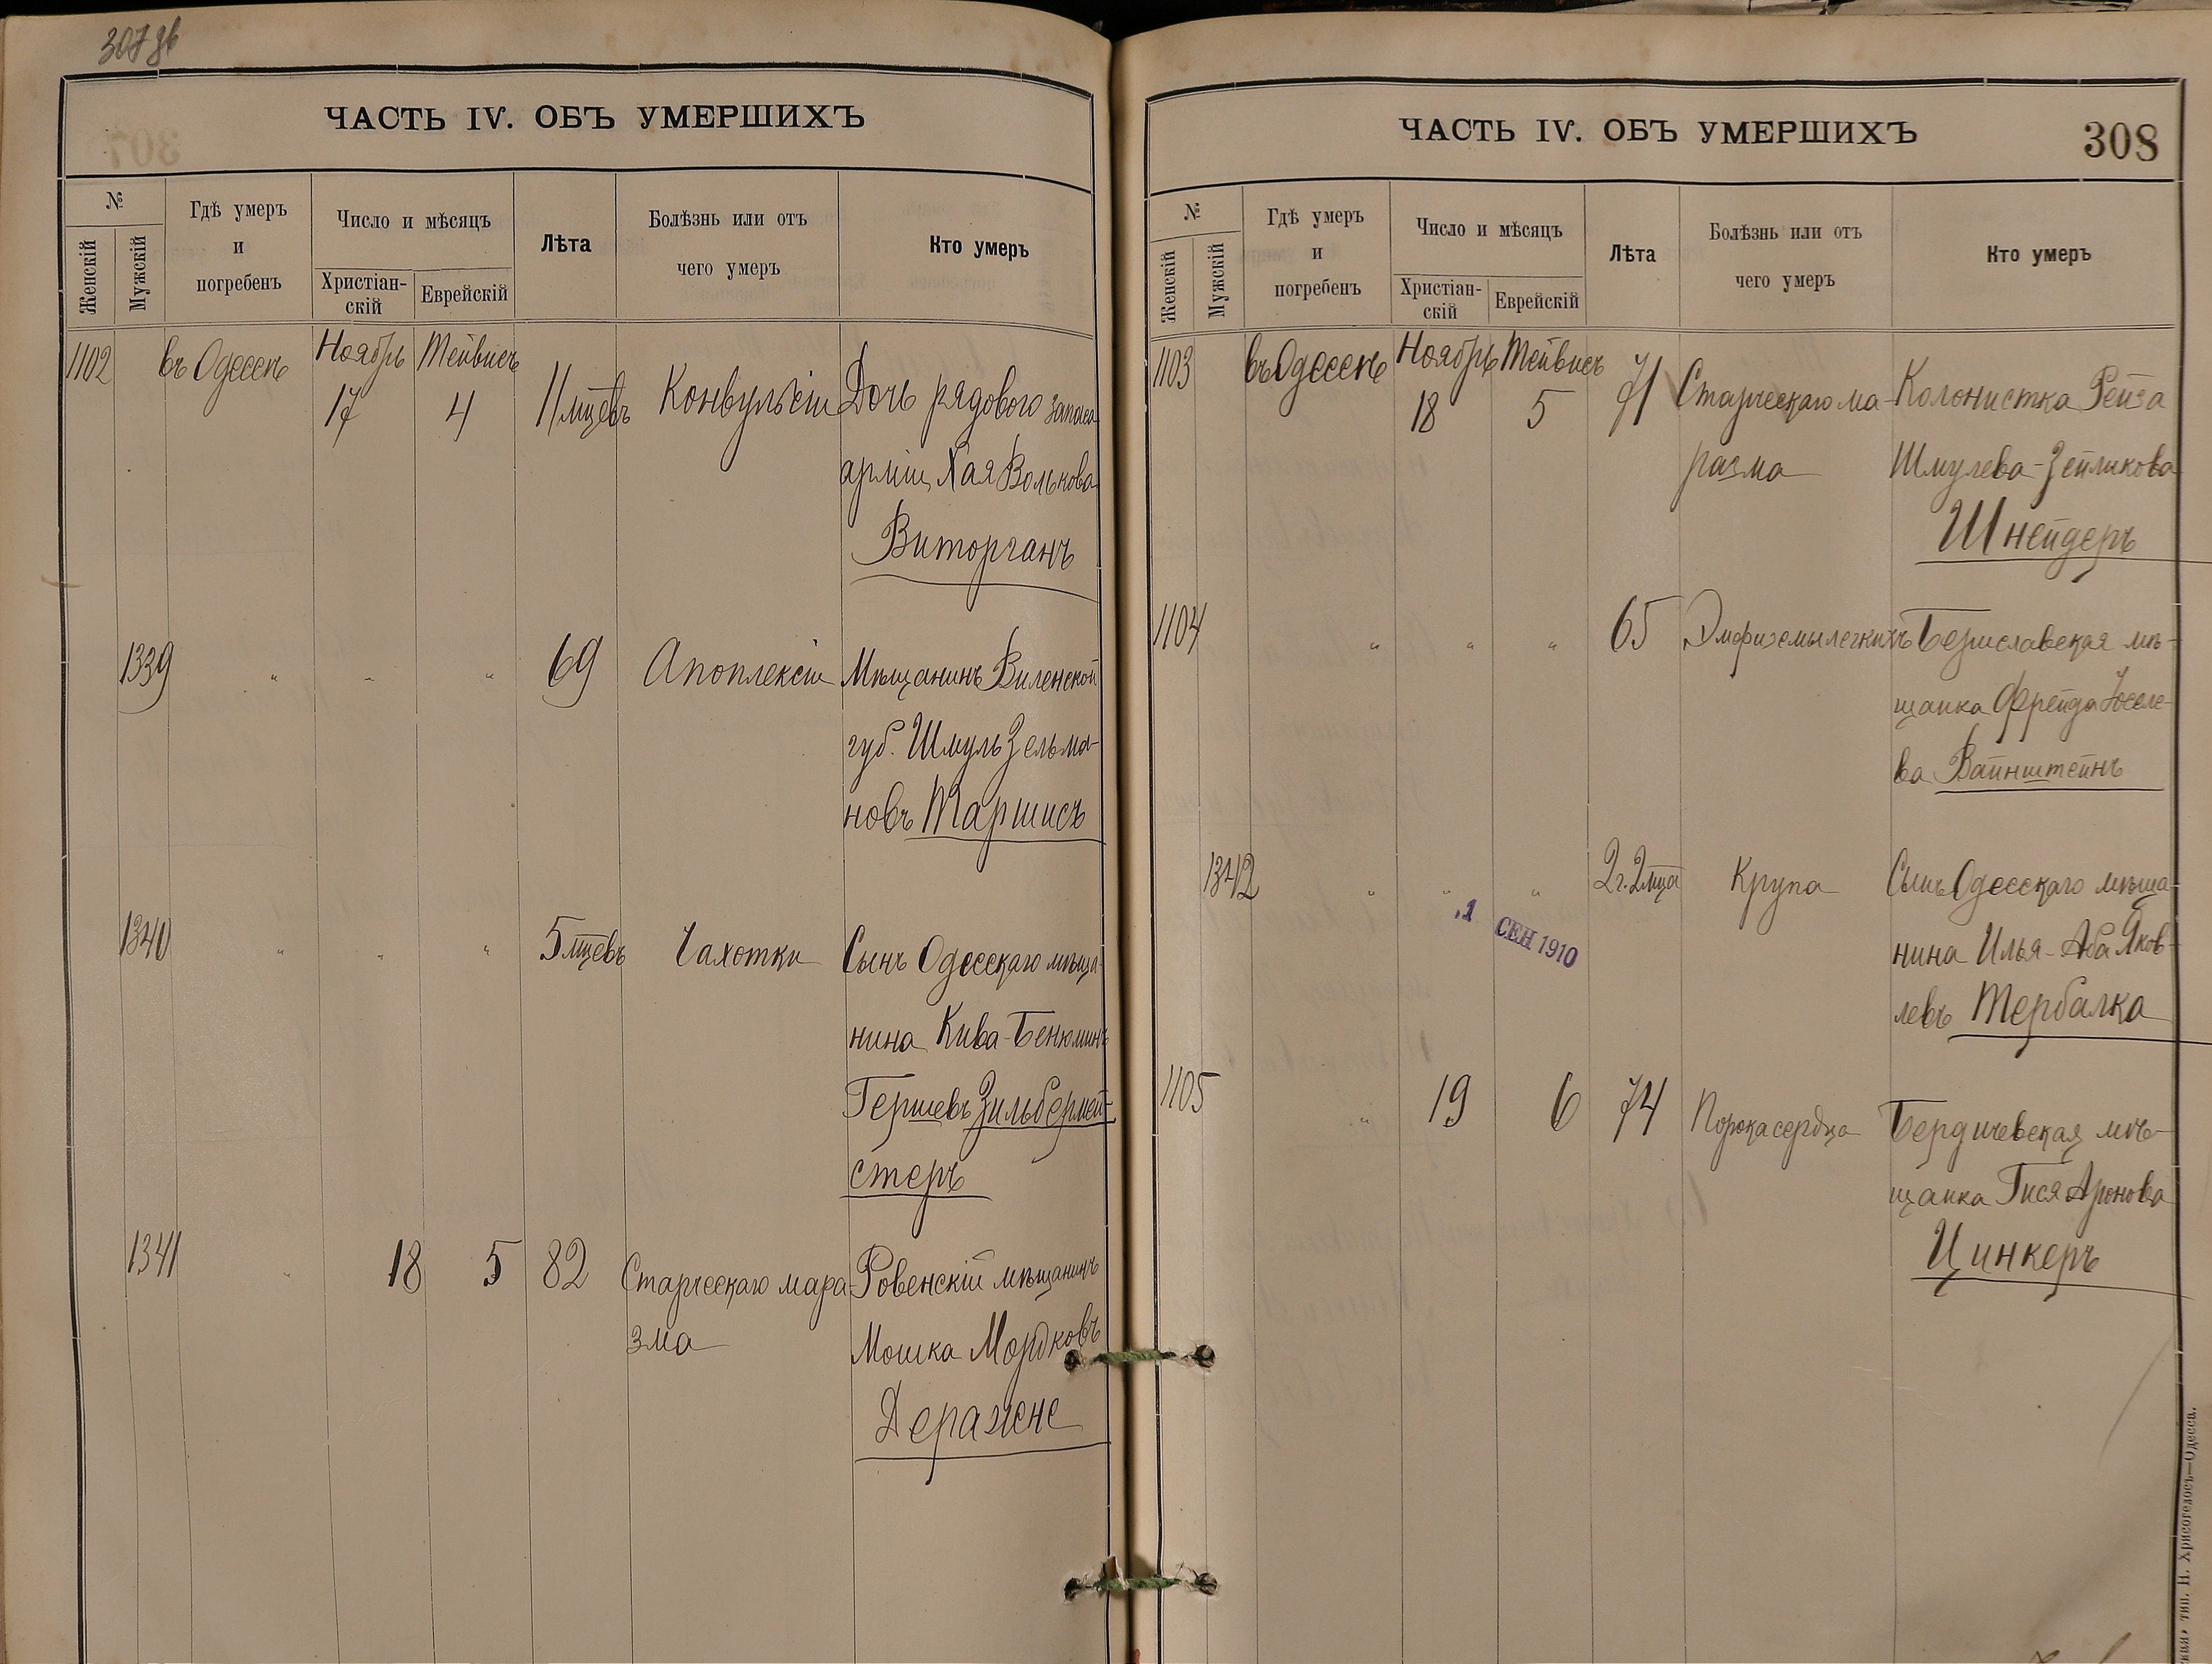 307 об
ЧАСТЬ IV. ОБЪ УМЕРШИХЪ
№
Женскій
Мужскій
Гдѣ умеръ
и
погребенъ
Число и мѣсяцъ
Христіан-
скій
Еврейскій
Лѣта
Болѣзнь или отъ
чего умеръ
Кто умеръ
1102 въ Одессѣ Ноябрь Тейвисъ
17 4 11 мцевъ Конвульсіи Дочь рядового запаса
арміи Хая Волькова
Виторганъ
1339 " " " 69 Апоплексіи Мѣщанинъ Виленской
губ. Шмуль Зельма-
новъ Таршисъ
1340 " " " 5 мцевъ Чахотки Сынъ Одесскаго мѣща-
нина Кива-Бенюминъ
Гершевъ Зильбермей-
стеръ
1341 " 18 5 82 Старческаго мара-
зма
Ровенскій мѣщанинъ
Мошка Мордковъ
Деражне
ЧАСТЬ IV. ОБЪ УМЕРШИХЪ
308
№
Женскій
Мужскій
Гдѣ умеръ
и
погребенъ
Число и мѣсяцъ
Христіан-
скій
Еврейскій
Лѣта
Болѣзнь или отъ
чего умеръ
Кто умеръ
1103 въ Одессѣ Ноябрь Тейвисъ
18 5 71 Старческаго ма-
разма
Колонистка Рейза
Шмулева-Зейликова
Шнейдеръ
1104 " " " 65 Эмфиземы легкихъ Бериславская мѣ-
щанка Фрейда Іоселе-
ва Вайнштейнъ
1342 " " " 2 г. 2 мца Крупа Сынъ Одесскаго мѣща-
нина Илья-Аба Яков-
левъ Тербалка
1 СЕН 1910
1105 " 19 6 74 Порока сердца Бердичевская мѣ-
щанка Гися Аронова
Цинкеръ
тип. Н. Хрисогелосъ—Одесса.